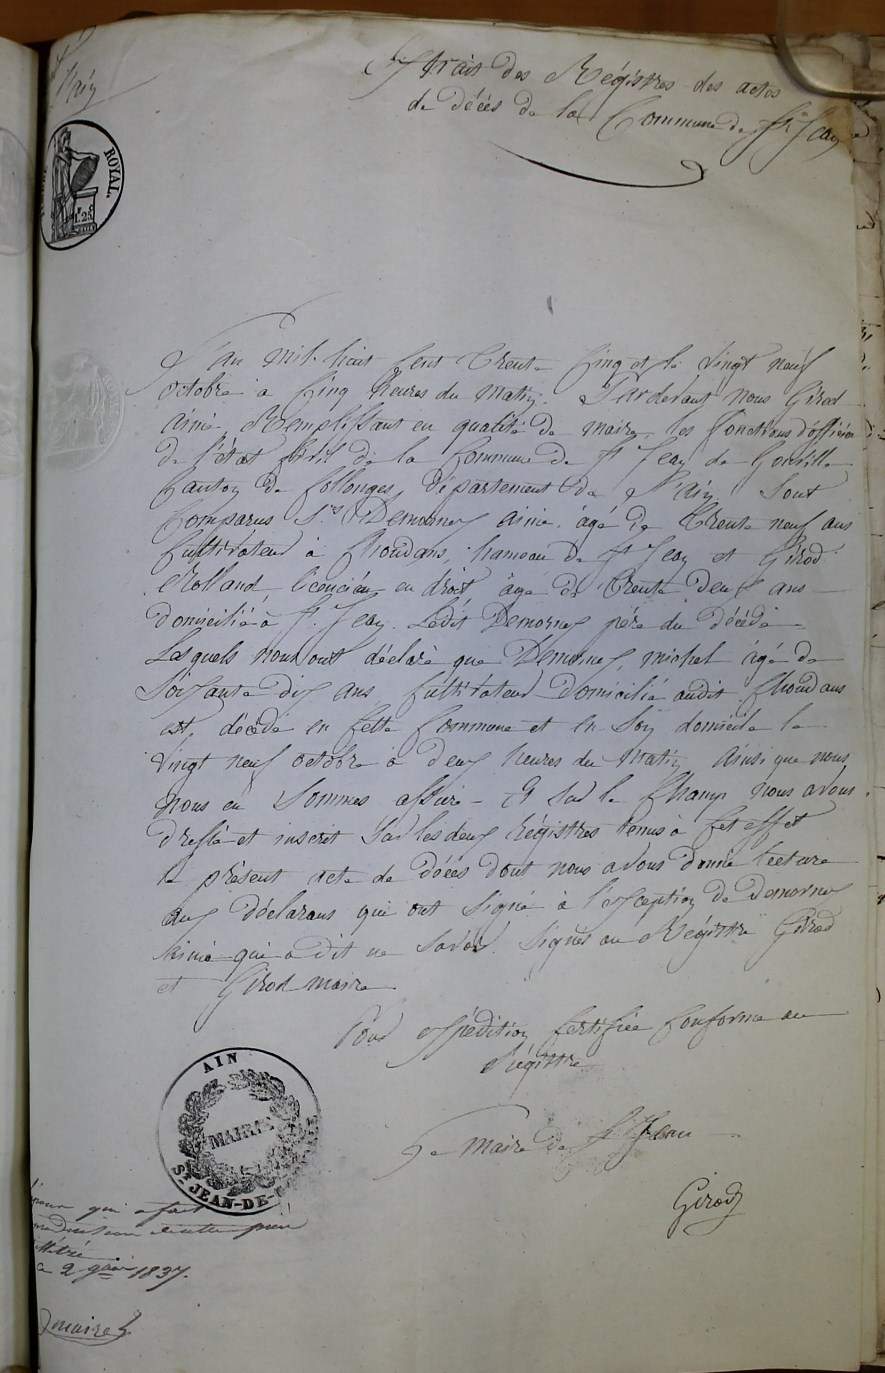 Extrait des Régistres des actes
de décés de la Commune de St Jean
l'ain
ROYAL.
1F.25C
L'an mil huit Cent trente Cinq et le vingt neuf
octobre a Cinq heures du matin. Pardevant nous Girod
Aimé, Remplissant en qualité de maire, les fonctions d'officier
de l'état Civil de la Commune de St Jean de Gonville
Canton de Collonges, département de l'ain. Sont
Comparus Srs Demornex aimé, agé de trente neuf ans
Cultivateur à Choudans, hameau de St Jean et Girod
Rolland, licencier en droit âgé de trente deux ans
domicilié à St. Jean. Ledit Demornex père du décédé
Lesquels nous ont déclaré que Demornex, michel âgé de
Soixante dix ans, Cultivateur domicilié audit Choudans
est, décédé en Cette Commune et en Son domicile le
vingt neuf octobre à deux heures du matin ainsi que nous
nous en Sommes assuré - Et Sur le Champ nous avons
dressé et inscrit Sur les deux Régistres tenus à Cet effet
le présent acte de décés dont nous avons donné lecture
aux déclarans qui ont Signé à l'exception de Demornex
Aimé qui a dit ne Savoir. Signés au Régistre Girod
et Girod maire
Pour expédition Certifiée Conforme au
Régistre
Le maire de St Jean
Girod
AIN
MAIRIE
ST JEAN-DE-
qui a fait
ce 2 1837.